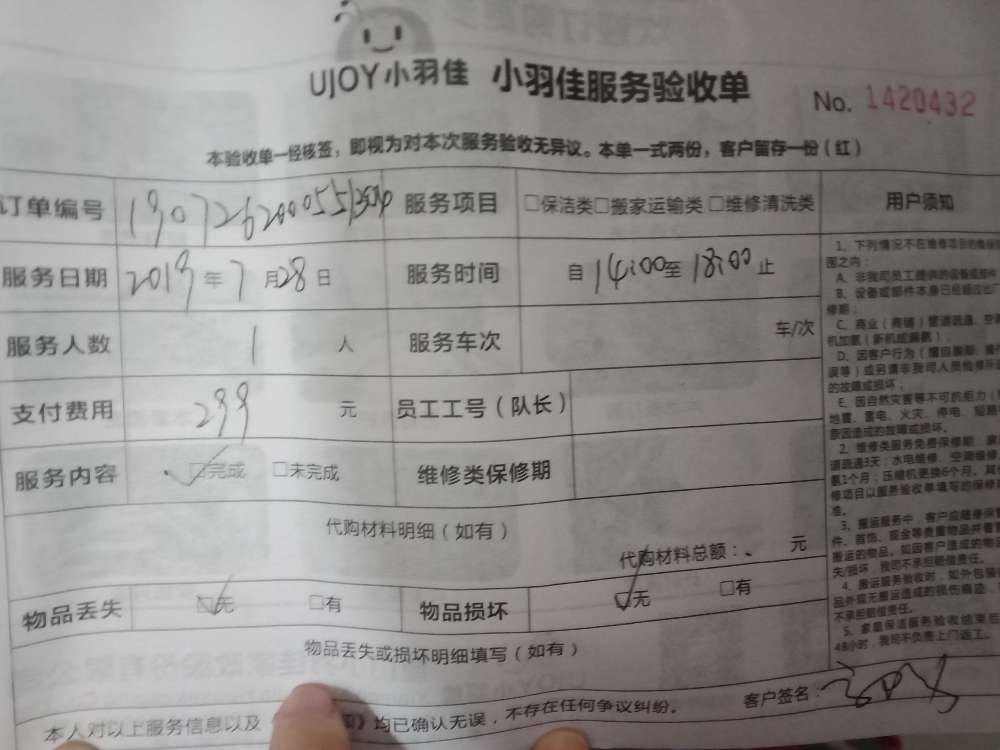 UJOY小羽佳 小羽佳服务验收单 No. 1420432
本验收单一经核签，即视为对本次服务验收无异议。本单一式两份，客户留存一份（红）
订单编号 服务项目 □保洁类□搬家运输类□维修清洗类 用户须知
服务日期 2019年7月28日 服务时间 自14:00至18:00止
服务人数 1 人 服务车次 车/次
支付费用 299 元 员工工号（队长）
服务内容 ☑完成 □未完成 维修类保修期
代购材料明细（如有）
代购材料总额： 元
物品丢失 ☑无 □有 物品损坏 ☑无 □有
物品丢失或损坏明细填写（如有）
客户签名：
本人对以上服务信息以及《 》均已确认无误，不存在任何争议纠纷。
1、下列情况不在维修项目的
围之内：
A、非我司员工提供的设备或部件
B、设备或部件本身已经超过出厂
修期；
C、商业（商铺）管道疏通、空调
机加氨（新机或漏氨）；
D、因客户行为（擅自
误等）或另请非我司人员检修所
的故障或损坏；
E、因自然灾害等不可抗拒力（
地震、雷电、火灾、停电、短路
原因造成的故障或损坏。
2、维修类服务免费保修期：
道疏通3天；水电维修、空调维修、
氨1个月；压缩机更换6个月。其
修项目以服务验收单填写的保修
准。
3、搬运服务中，客户应随身保管
件、首饰、现金等贵重物品并看管
搬运的物品。如因客户造成的物品
失/损坏，我司不承担赔偿责任。
4、搬运服务验收时，如外包装
品外观无搬运造成的损伤痕迹，
不承担赔偿责任。
5、家庭保洁服务验收结束后
48小时，我司不负责上门返工。